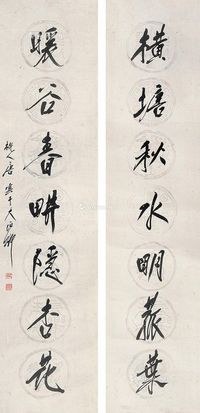 橫塘秋水明菰葉
暖谷春畊隱杏花